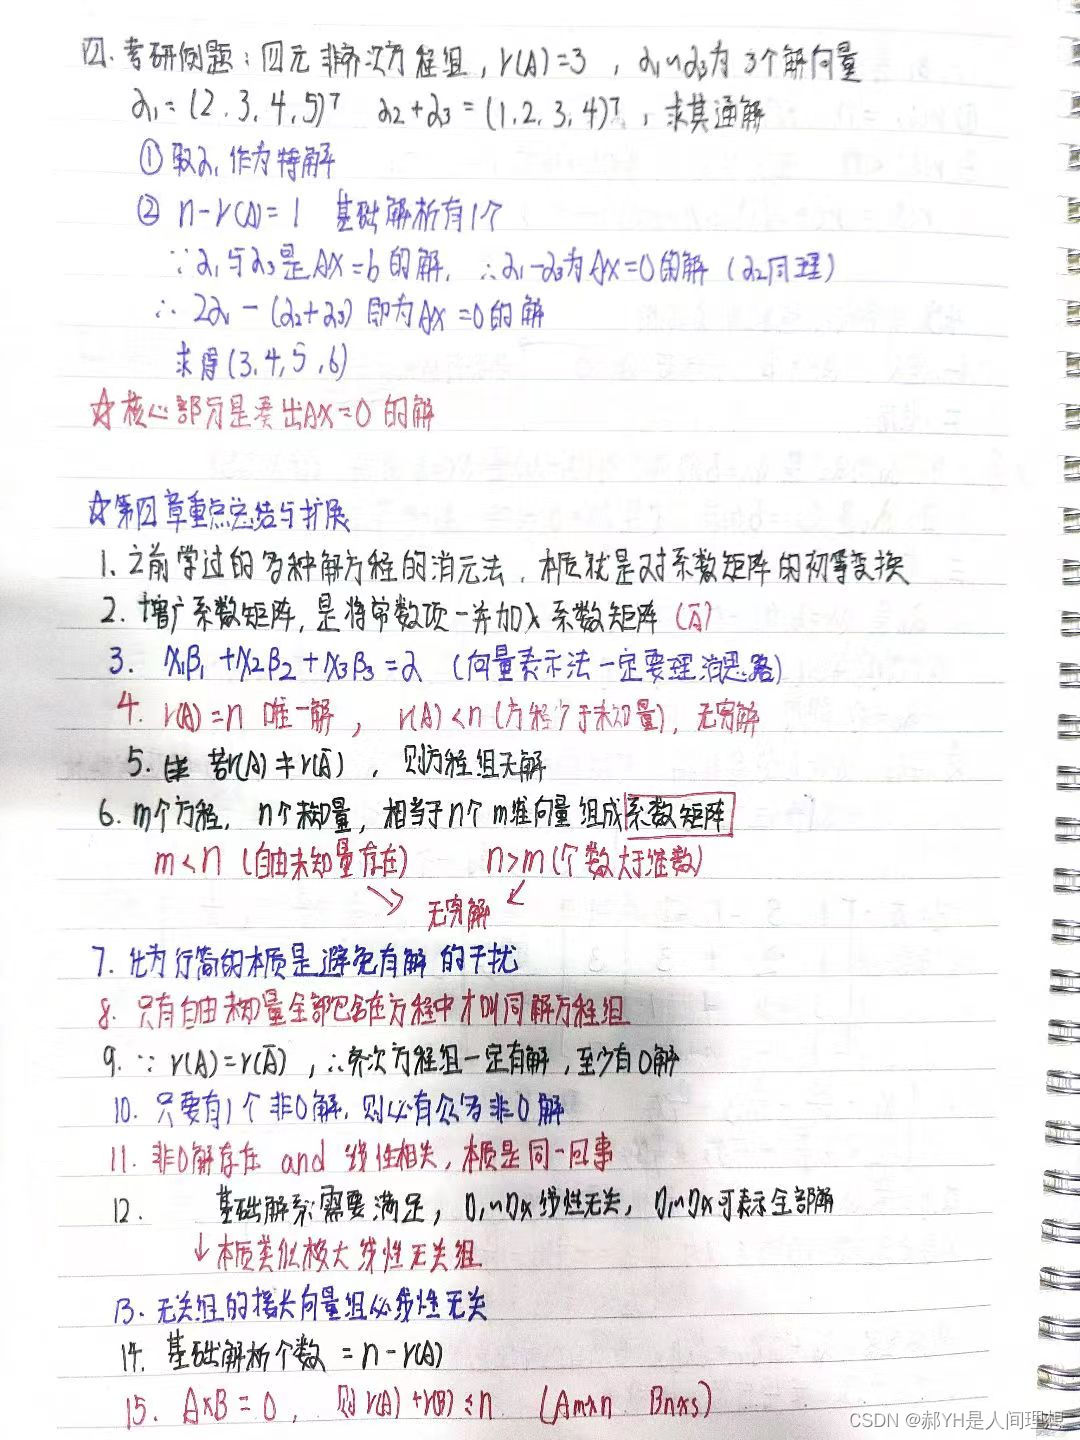 四.考研例题:四元非齐次方程组,r(A)=3 ,α₁~α₃为3个解向量
α₁=(2.3,4,5)ᵀ α₂+α₃=(1.2.3,4)ᵀ,求其通解
①取α₁作为特解
② n-r(A)=1 基础解析有1个
∵α₁与α₃是AX=b的解, ∴α₁-α₃为AX=0的解(α₂同理)
∴ 2α₁-(α₂+α₃)即为AX=0的解
求得(3,4,5,6)
☆核心部分是凑出AX=0的解
☆第四章重点总结与扩展
1.之前学过的各种解方程的消元法,本质就是对系数矩阵的初等变换
2.增广系数矩阵,是将常数项一并加入系数矩阵(Ā)
3. x₁β₁+x₂β₂+x₃β₃=α (向量表示法一定要理清思路)
4. r(A)=n 唯一解, r(A)<n(方程少于未知量),无穷解
5. 若r(A)≠r(Ā),则方程组无解
6.m个方程,n个未知量,相当于n个m维向量组成系数矩阵
m<n(自由未知量存在) n>m(个数大于维数)
无穷解
7.化为行简的本质是避免有解的干扰
8.只有自由未知量全部包含在方程中才叫同解方程组
9.∵r(A)=r(Ā),∴齐次方程组一定有解,至少有0解
10.只要有1个非0解,则必有众多非0解
11.非0解存在 and 线性相关,本质是同一回事
12. 基础解系需要满足,η₁~ηx线性无关,η₁~ηx可表示全部解
↓本质类似极大线性无关组
13.无关组的接长向量组必线性无关
14.基础解析个数=n-r(A)
15. A×B=0, 则r(A)+r(B)≤n (Am×n Bn×s)
CSDN @郝YH是人间理想